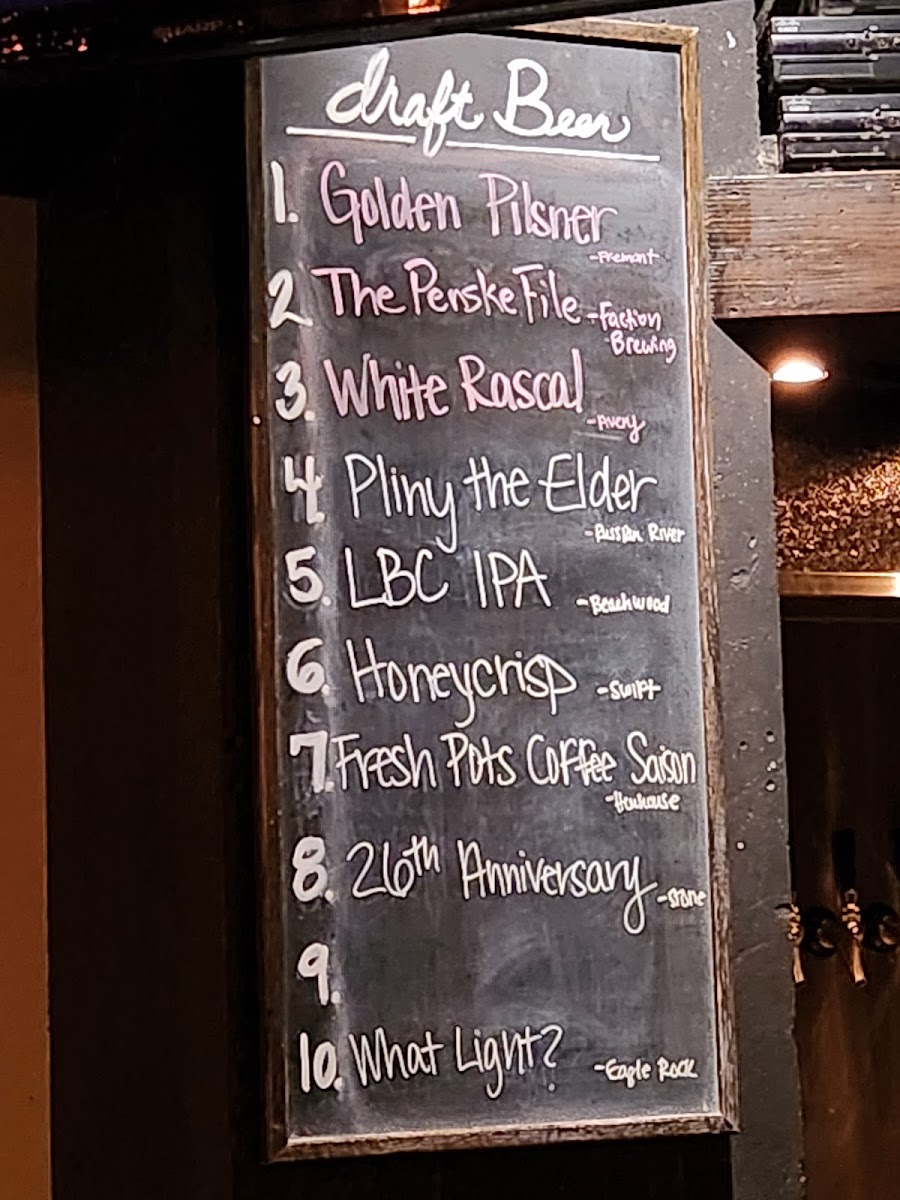 draft Beer
1. Golden Pilsner
-Fremont
2 The Penske File -Faction
Brewing
3. White Rascal
-Avery
4. Pliny the Elder
-Russian River
5. LBC IPA -Beachwood
6. Honeycrisp -Swift
7. Fresh Pots Coffee Saison
-Henhouse
8. 26th Anniversary -Stone
9.
10. What Light? -Eagle Rock